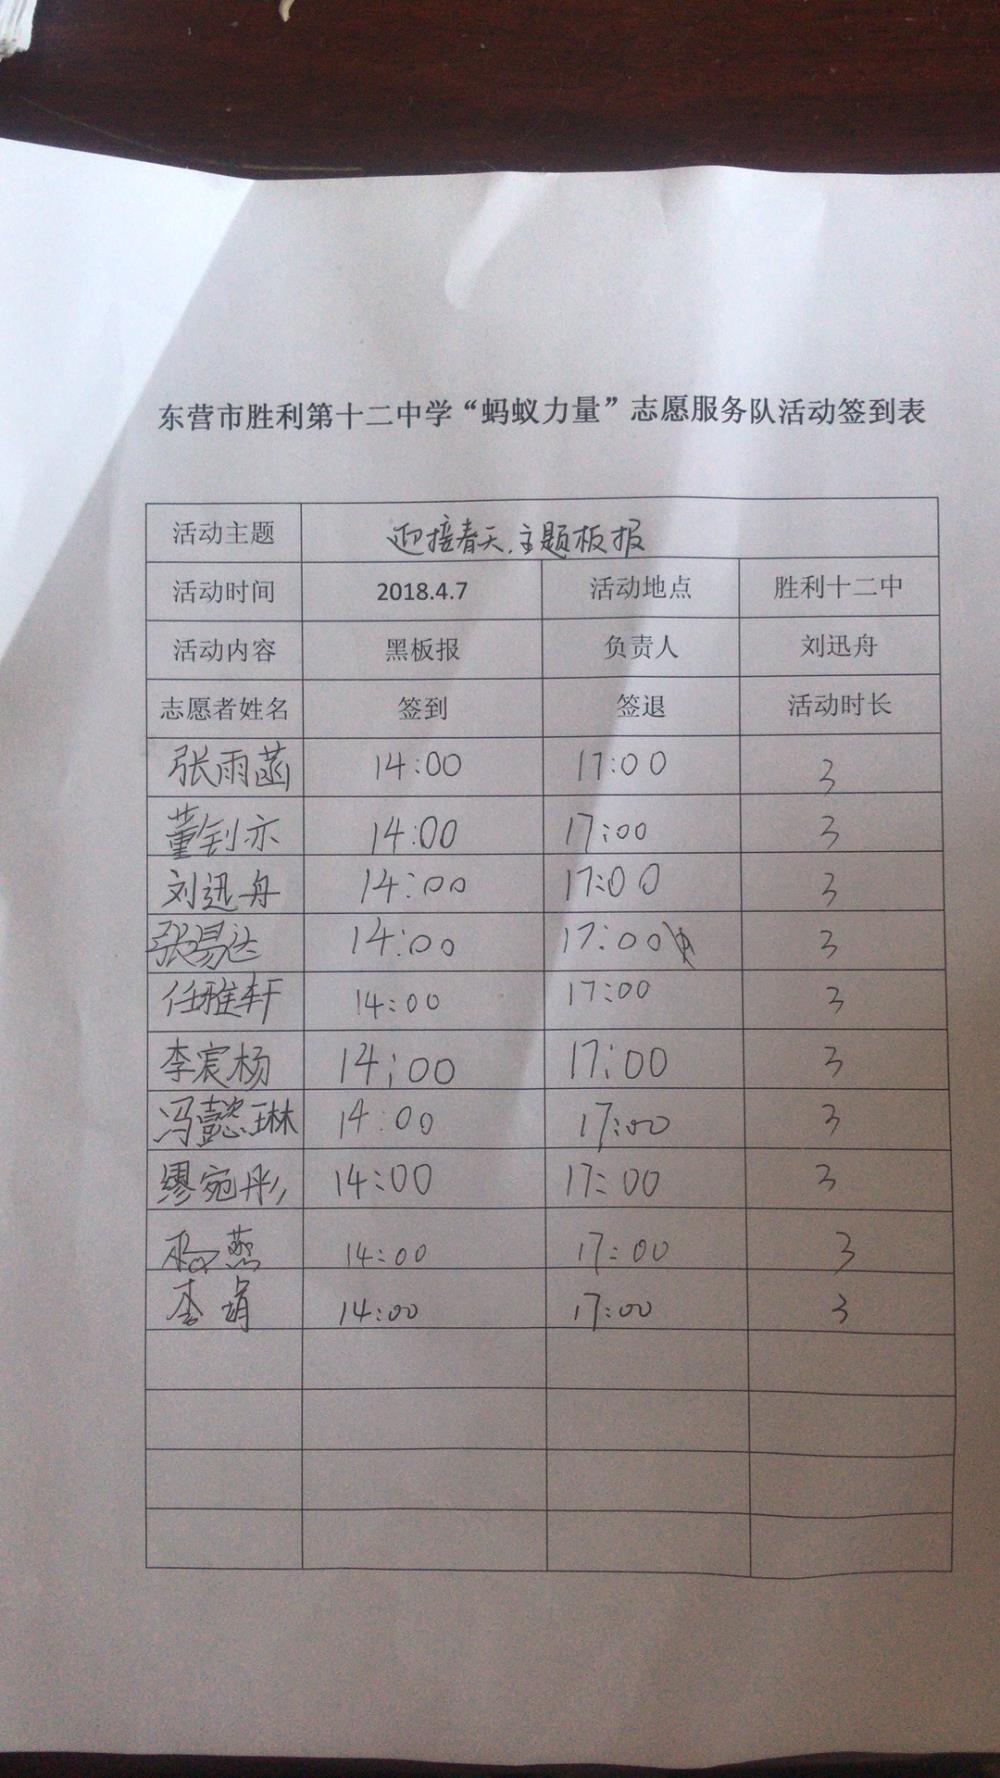 东营市胜利第十二中学“蚂蚁力量”志愿服务队活动签到表
活动主题 迎接春天.主题板报
活动时间 2018.4.7 活动地点 胜利十二中
活动内容 黑板报 负责人 刘迅舟
志愿者姓名 签到 签退 活动时长
张雨菡 14:00 17:00 3
董钊亦 14:00 17:00 3
刘迅舟 14:00 17:00 3
张易达 14:00 17:00 3
任雅轩 14:00 17:00 3
李宸杨 14:00 17:00 3
冯懿琳 14:00 17:00 3
缪宛彤 14:00 17:00 3
14:00 17:00 3
李娟 14:00 17:00 3